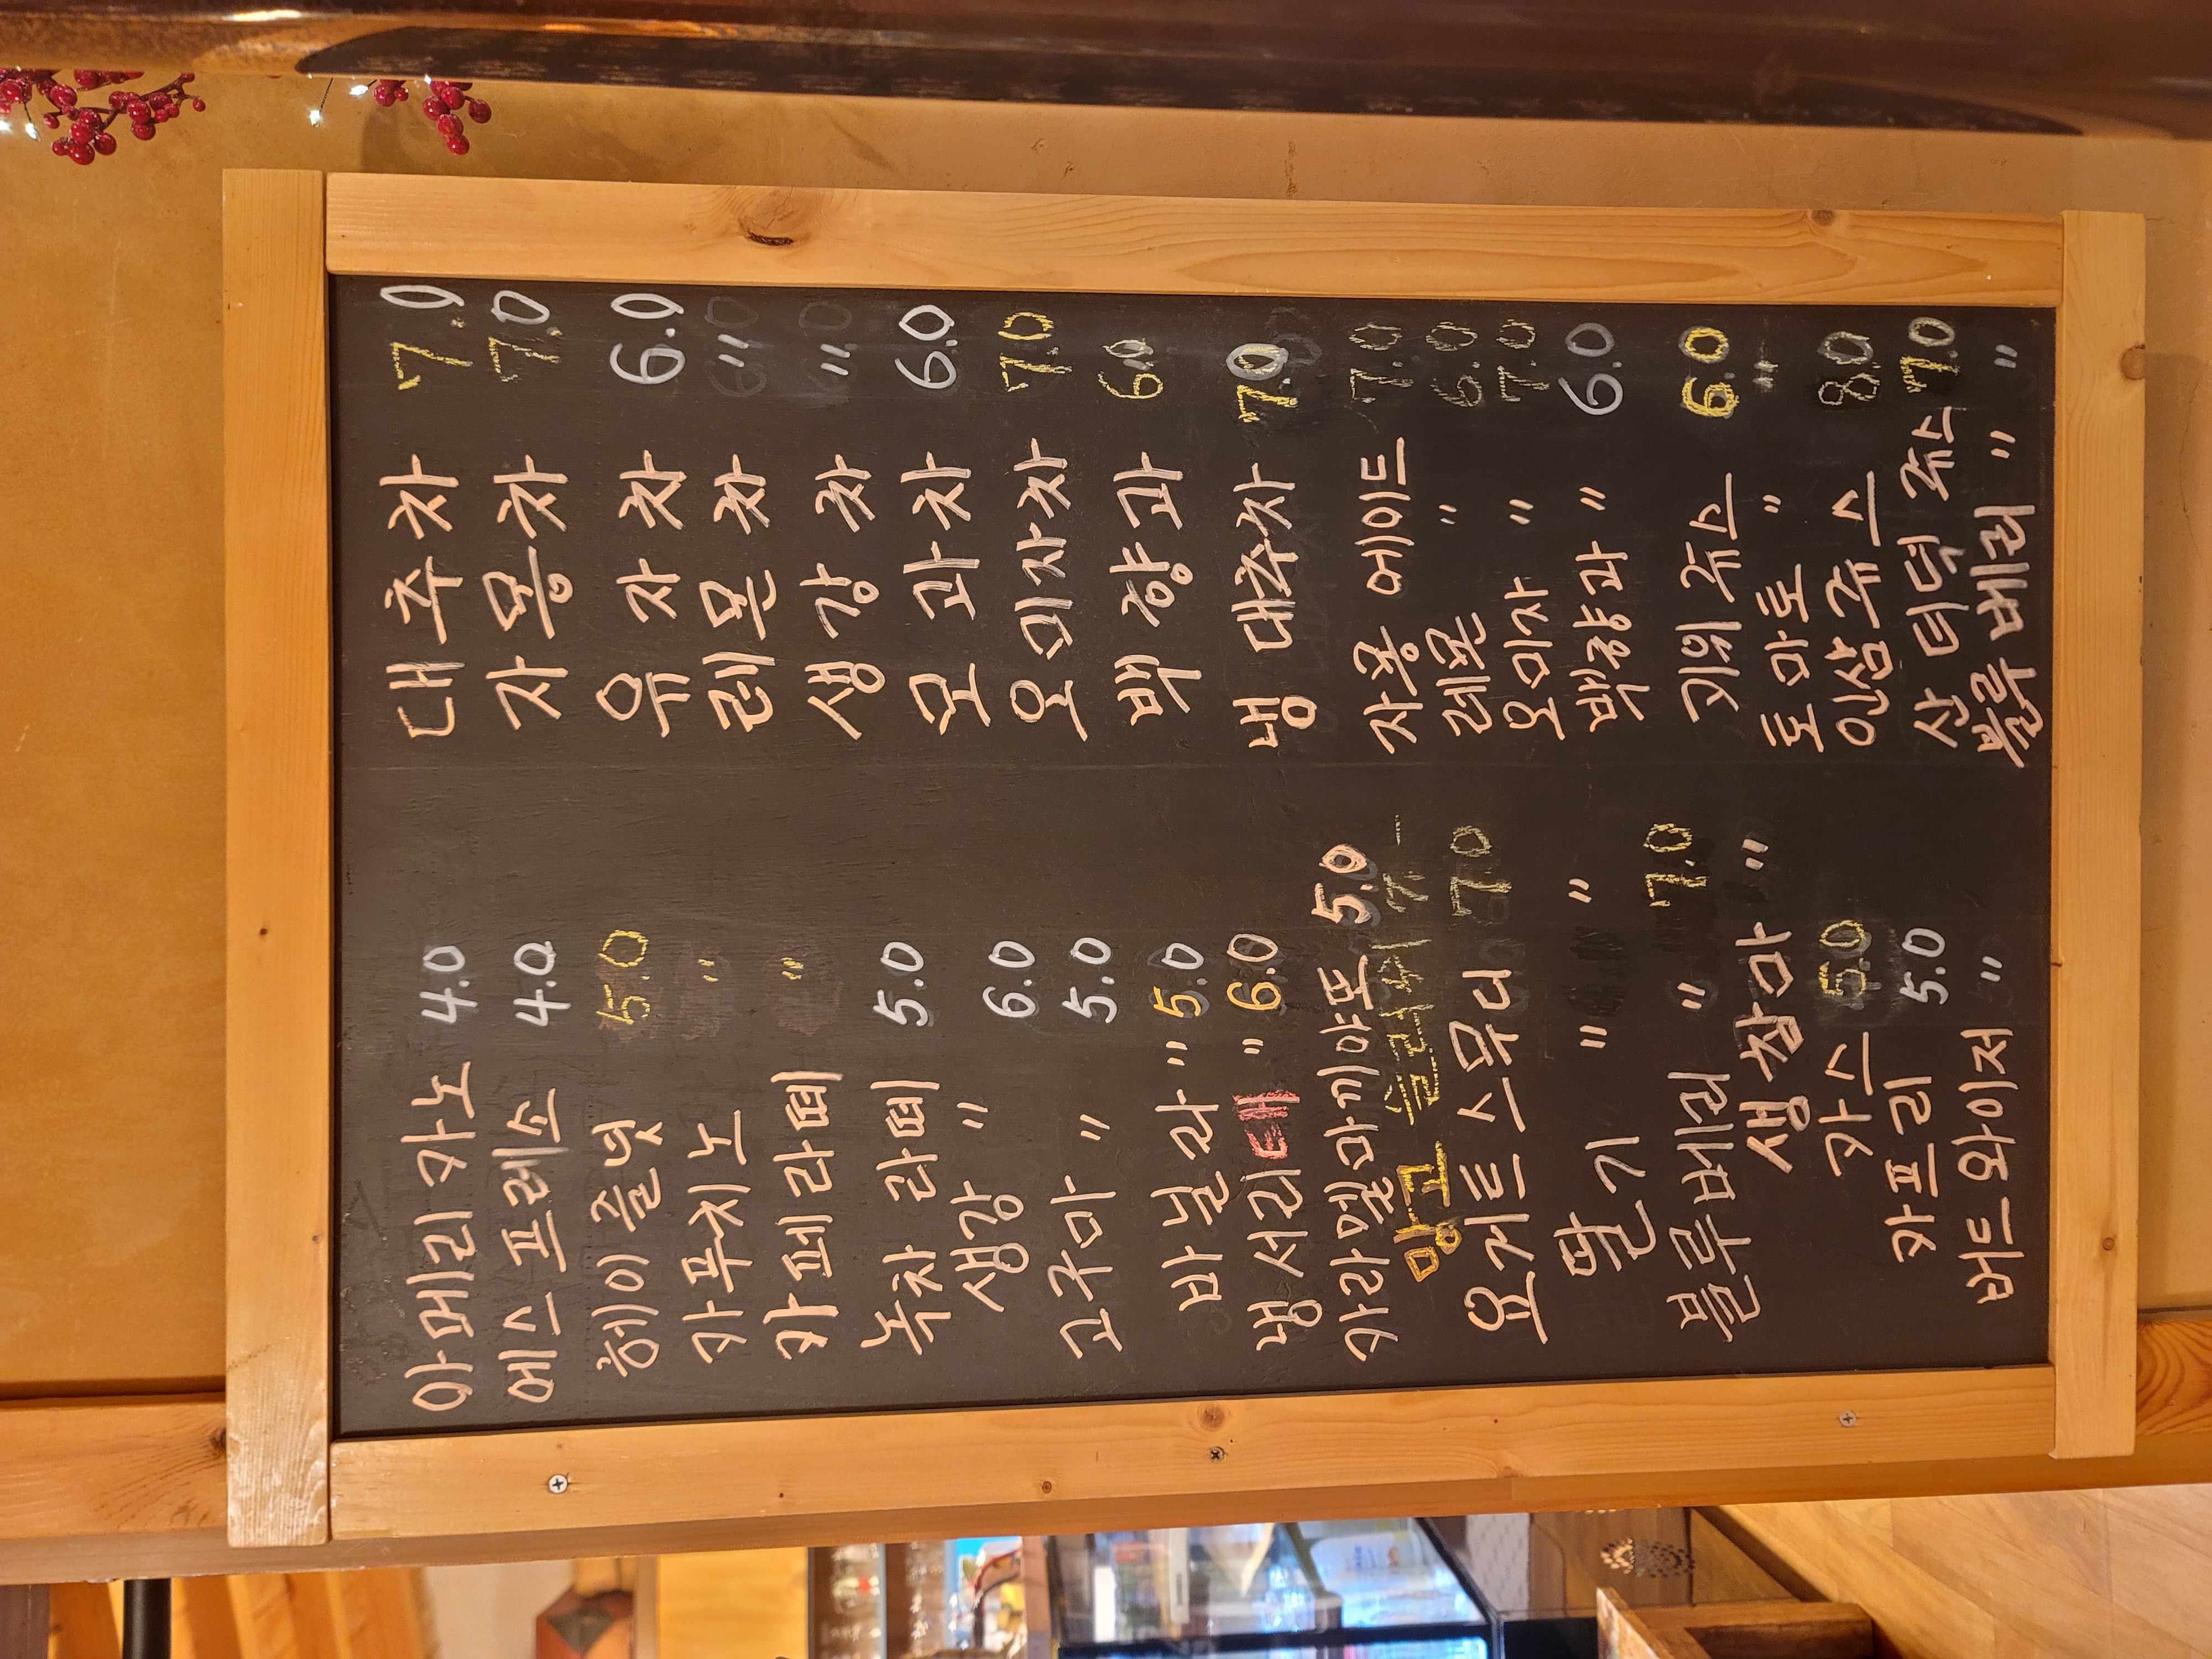 아메리카노 4.0
에스프레소 4.0
헤이즐넛 5.0
카푸치노 "
카페라떼 "
녹차 라떼 5.0
생강 " 6.0
고구마 " 5.0
바닐라 " 5.0
냉 서리태 " 6.0
카라멜마끼야또 5.0
망고
요거트 스무디 7.0
딸기 " "
블루베리 " 7.0
생 참마 "
카스 5.0
카프리 5.0
버드와이저 "
대추차 7.0
자몽차 7.0
유자차 6.0
레몬차 "
생강차 "
모과차 6.0
오미자차 7.0
백향과 6.0
냉 대추차 7.0
자몽 에이드 7.0
레몬 " 6.0
오미자 " 7.0
백향과 " 6.0
키위 쥬스 6.0
토마토 " "
인삼쥬스 8.0
산 더덕 쥬스 7.0
블루베리 " "